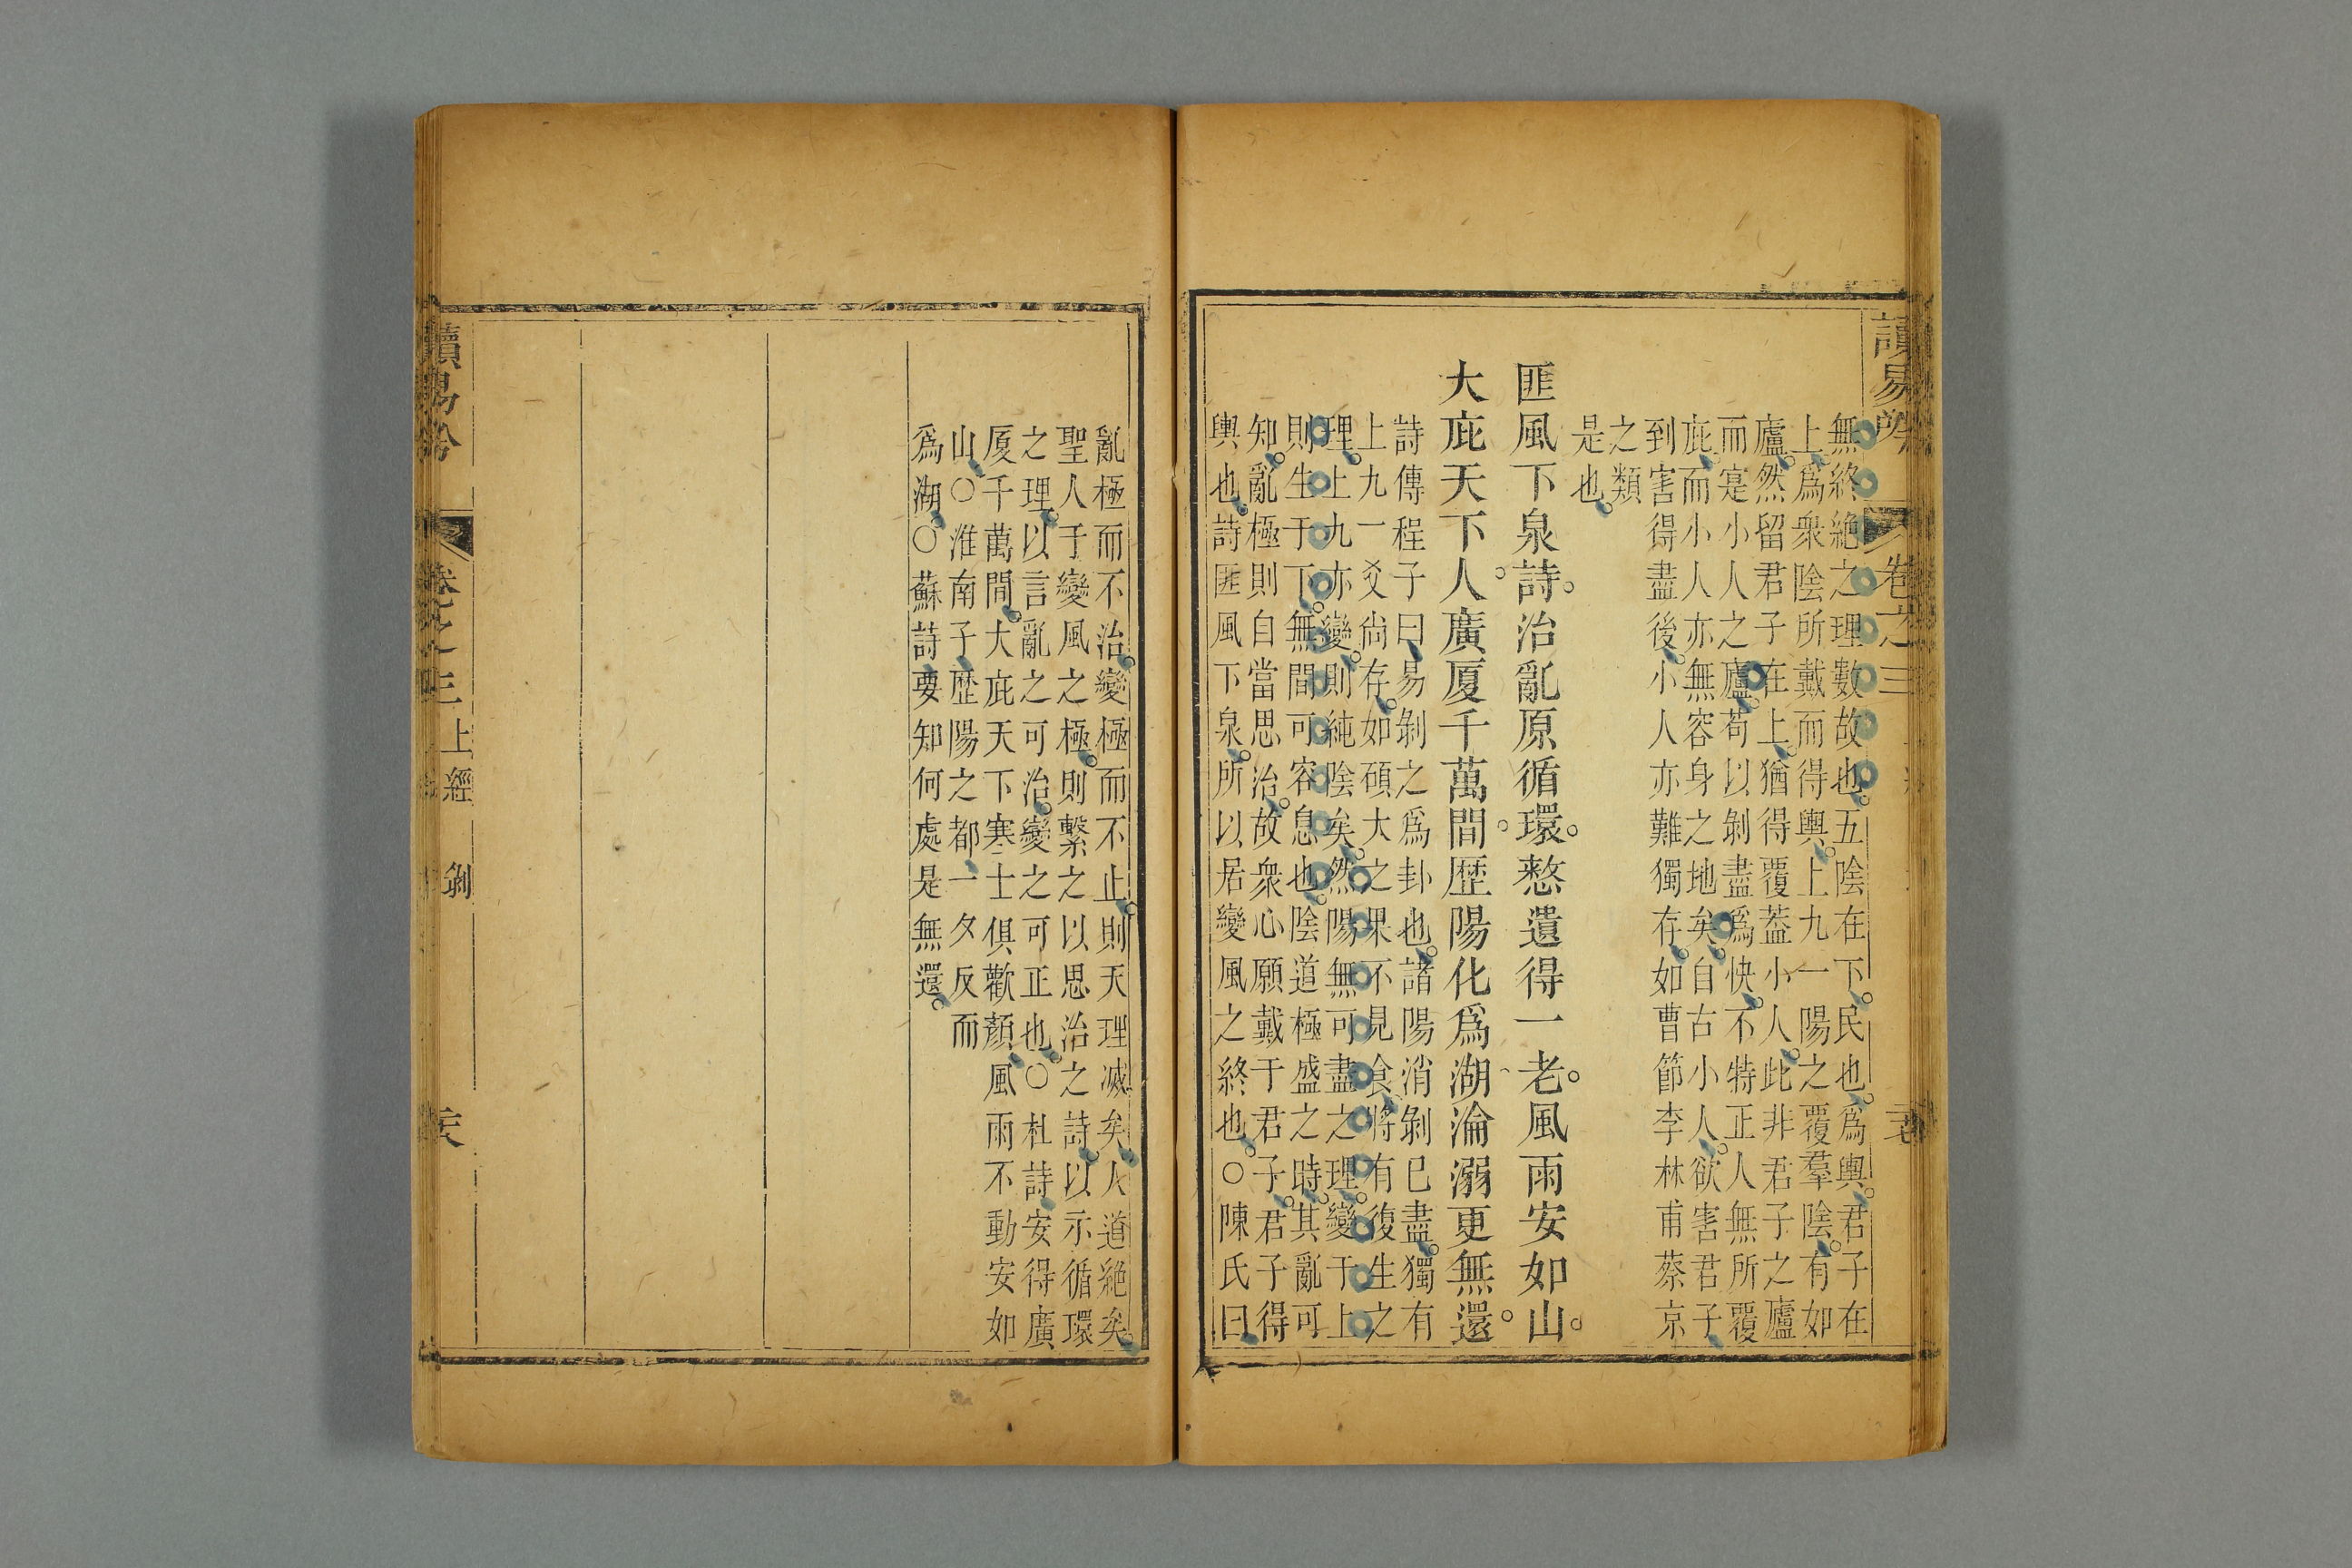 讀易所
卷之三
無終絶之理數故也五陰在下民也爲輿君子在
上爲衆陰所戴而得輿上九一陽之覆羣陰有如
廬然留君子在上猶得覆葢小人此非君子之廬
而寔小人之廬苟以剝盡爲快不特正人無所覆
庇而小人亦無容身之地矣自古小人欲害君子
到害得盡後小人亦難獨存如曹節李林甫蔡京
之類
是也
匪風下泉詩治亂原循環憗遺得一老風雨安如山
大庇天下人廣厦千萬間歷陽化爲湖淪溺更無還
詩傳程子曰易剝之爲卦也諸陽消剝已盡獨有
上九一爻尙存如碩大之果不見食將有復生之
理上九亦變則純陰矣然陽無可盡之理變于上
則生于下無間可容息也陰道極盛之時其亂可
知亂極則自當思治故衆心願戴于君子君子得
輿也詩匪風下泉所以居變風之終也○陳氏曰
亂極而不治變極而不止則天理滅矣人道絕矣
聖人于變風之極則繫之以思治之詩以示循環
之理以言亂之可治變之可正也○杜詩安得廣
厦千萬間大庇天下寒士俱歡顏風雨不動安如
山○淮南子歷陽之都一夕反而
爲湖○蘇詩要知何處是無還
讀易
卷之三
上經
剝